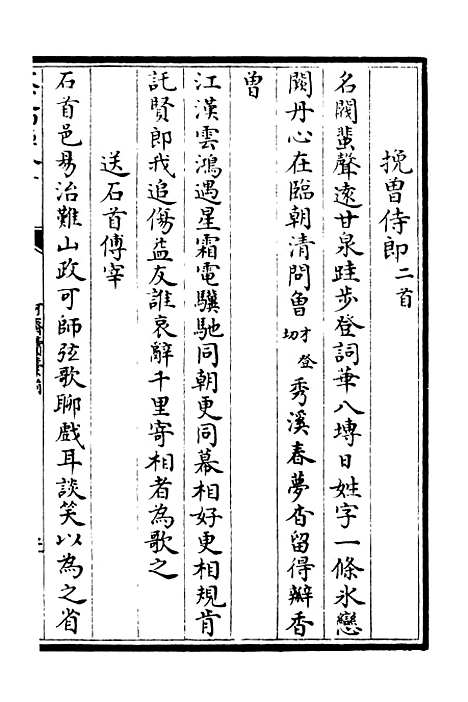 挽曾侍郎二首
名閥蜚聲遠甘泉跬步登詞華八塼日姓字一條氷戀
闕丹心在臨朝清問曾才登切秀溪春夢杳留得辦香
曾
江漢雲鴻遇星霜電驥馳同朝更同幕相好更相規肯
託賢郎我追傷益友誰哀辭千里寄相者為歌之
送石首傅宰
石首邑易治難山政可師弦歌聊戲耳談笑以為之省